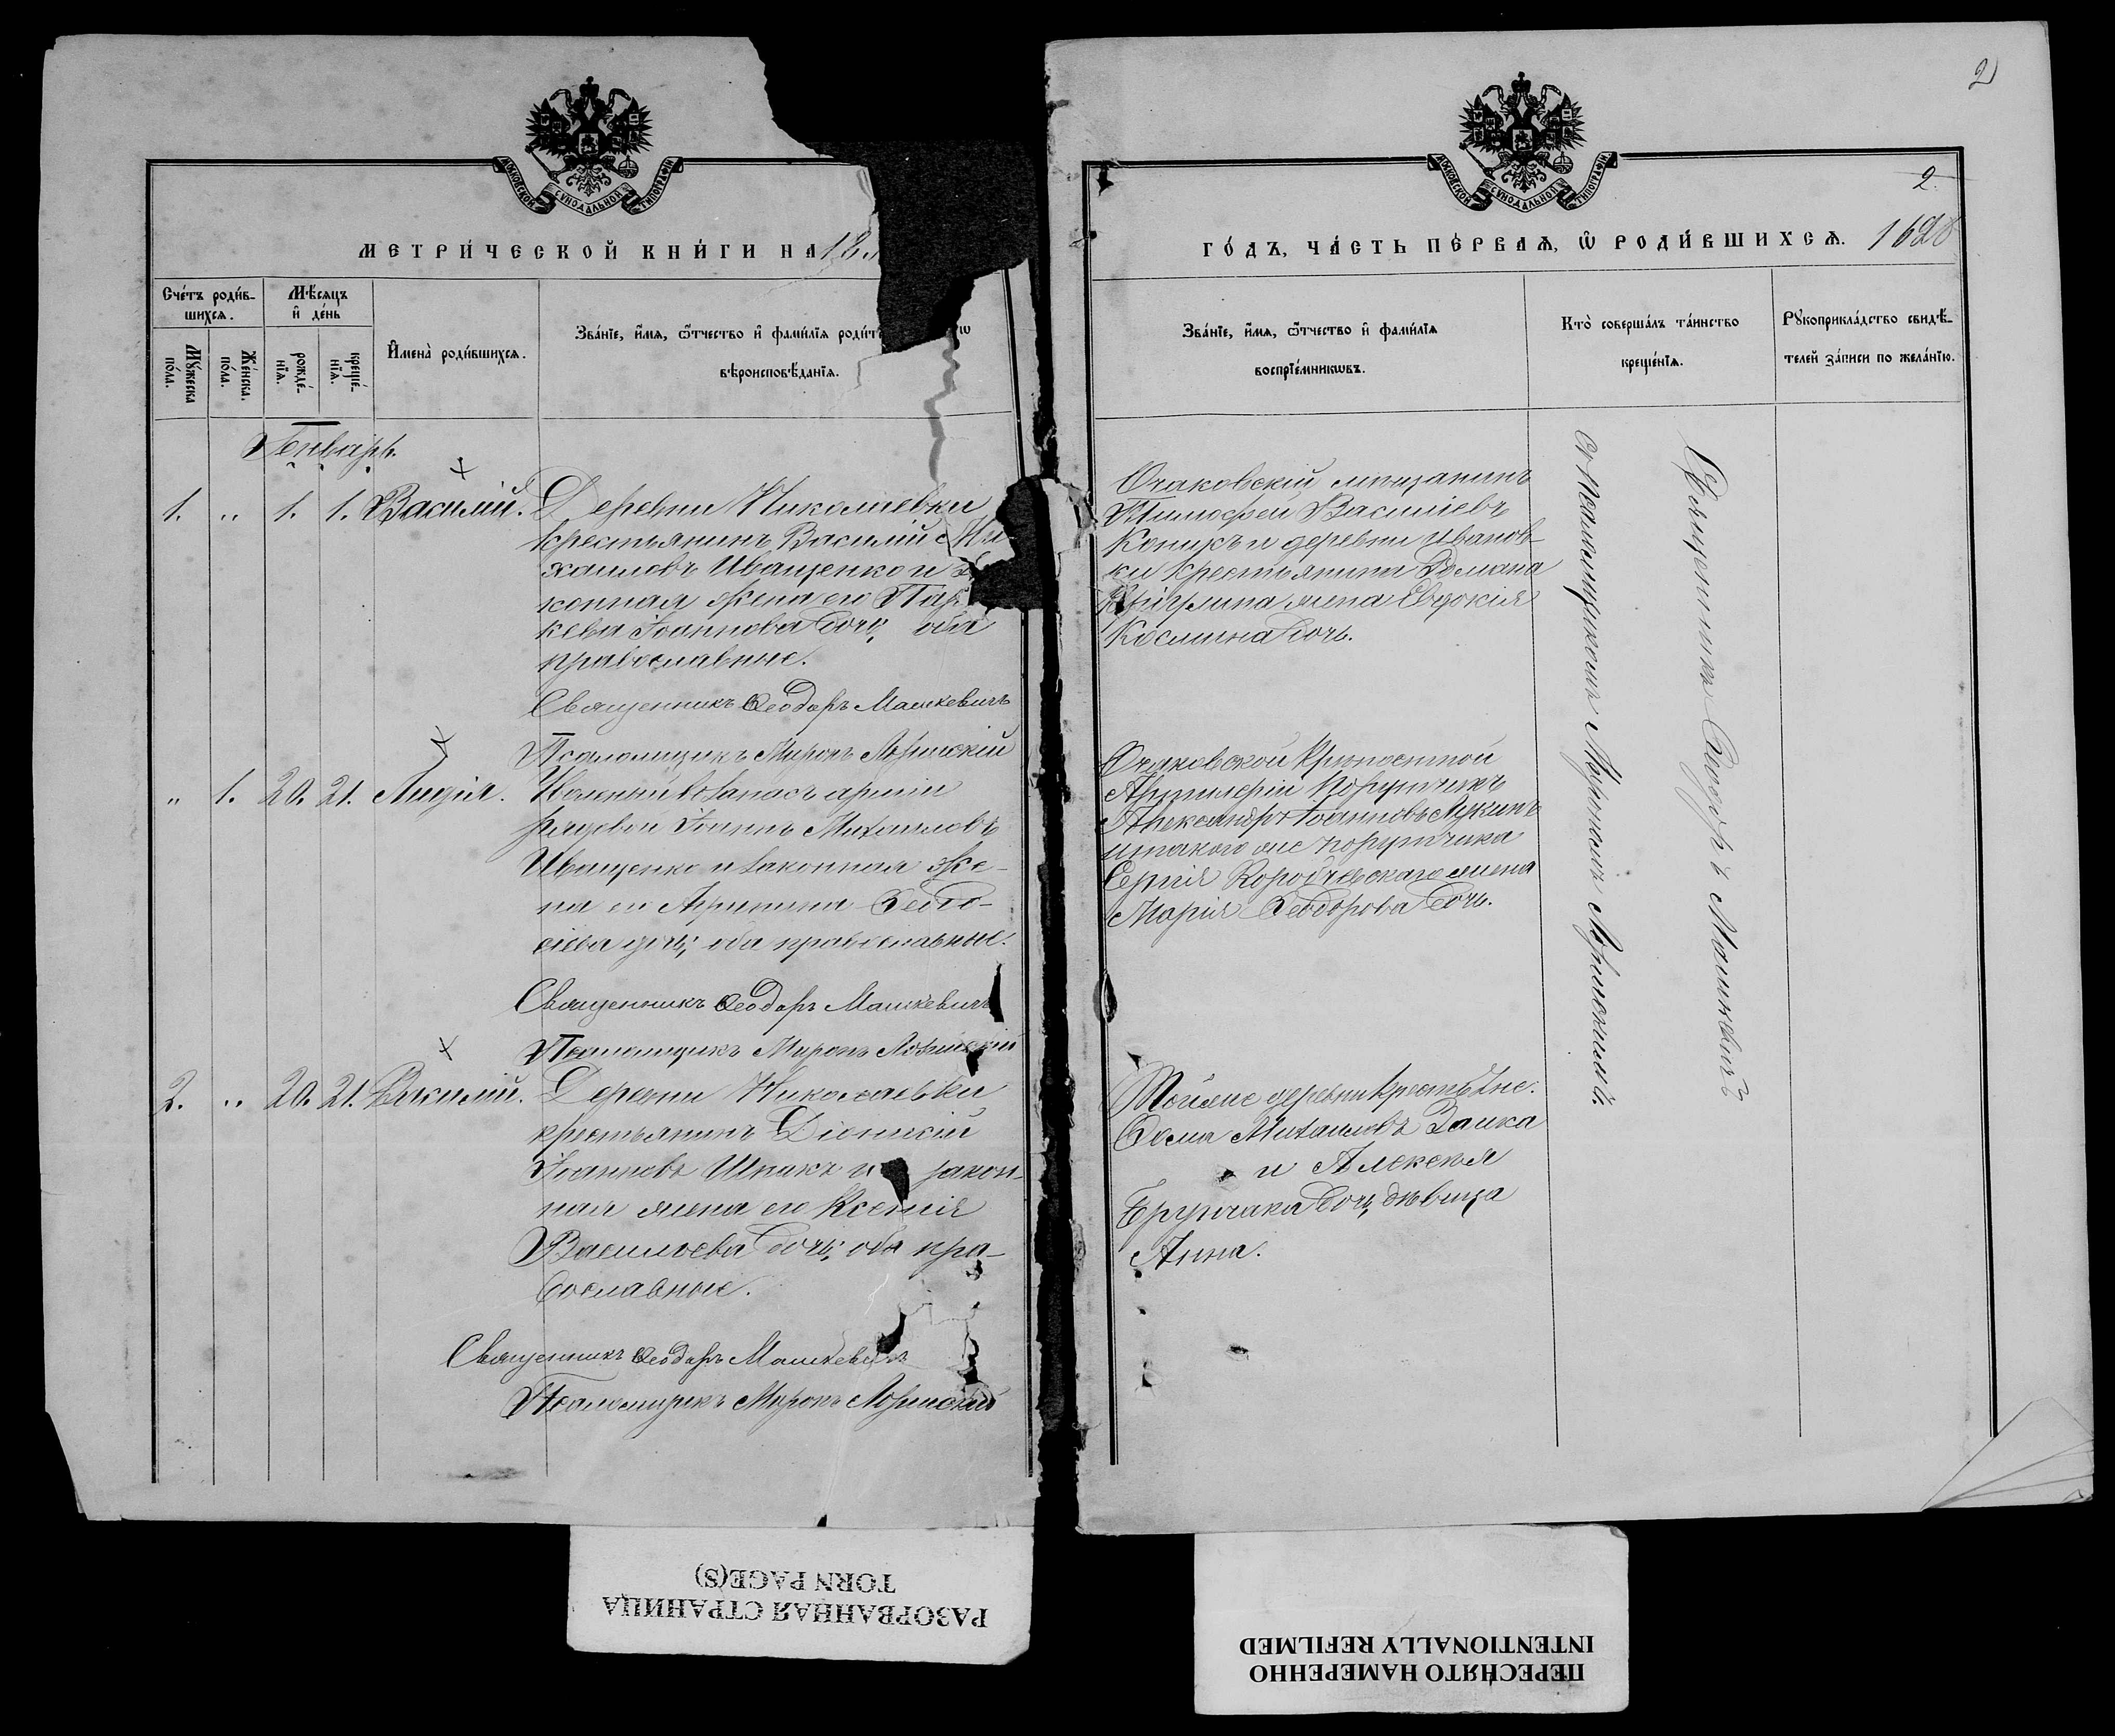 2
МОСКОВСКОЙ СѴНОДАЛЬНОЙ ТИПОГРАФІИ
МЕТРИ́ЧЕСКОЙ КНИ́ГИ НА 18
Сче́тъ роди́в-
шихсѧ.
Мѣ́сѧцъ
и҆ де́нь
Мꙋ́жеска
по́ла.
Же́нска
по́ла.
рожде́-
нїѧ.
креще́-
нїѧ.
И҆мена̀ роди́вшихсѧ.
Зва́нїе, и҆́мѧ, ѻ҆́тчество и҆ фами́лїѧ роди́т
вѣроисповѣ́данїѧ.
Генварь.
1. „ 1. 1. Василій. Деревни Николаевки
крестьянинъ Василій Ми-
хаиловъ Иващенко и за
конная жена его Пар
кева Іоаннова дочь, оба
православные.
Священникъ Ѳеодоръ Машкевичъ
Псаломщикъ Миронъ Лозинскій
„ 1. 20. 21. Лидія. Уволенный въ запасъ арміи
рядовой Іоаннъ Михаиловъ
Иващенко и законная же-
на его Агрипина Ѳеодо-
сіева дочь, оба православные.
Священникъ Ѳеодоръ Машкевичъ
Псаломщикъ Миронъ Лозинскій
2. „ 20. 21. Василій. Деревни Николаевки
крестьянинъ Діонисій
Іоанновъ Шпакъ и закон-
ная жена его Ксенія
Васильева дочь, оба пра-
вославные.
Священникъ Ѳеодоръ Машкевичъ
Псаломщикъ Миронъ Лозинскій
МОСКОВСКОЙ СѴНОДАЛЬНОЙ ТИПОГРАФІИ
2.
ГО́ДЪ, ЧА́СТЬ ПЕ́РВАѦ, Ѽ РОДИ́ВШИХСѦ. 1628
Зва́нїе, и҆́мѧ, ѻ҆́тчество и҆ фами́лїѧ
воспрїе́мникѡвъ.
Кто̀ соверша́лъ та́инство
креще́нїѧ.
Рꙋкоприкла́дство свидѣ́-
телей за́писи по жела́нїю.
Очаковскій мѣщанинъ
Тимофей Васильевъ
и деревни Иванов-
ки крестьянина Романа
жена Евдокія
Косьмина дочь.
Очаковской крѣпостной
Артилеріи Порутчикъ
Александръ Іоанновъ Лукинъ
и такого же порутчика
Сергія жена
Марія Ѳеодорова дочь.
Тойже деревни крестьяне:
Ѳома Михаиловъ Заика
и Алексѣя
дочь, дѣвица
Анна.
Священникъ Ѳеодоръ Машкевичъ
съ Псаломщикомъ Мирономъ Лозинскимъ.
РАЗОРВАННАЯ СТРАНИЦА
TORN PAGE(S)
ПЕРЕСНЯТО НАМЕРЕННО
INTENTIONALLY REFILMED